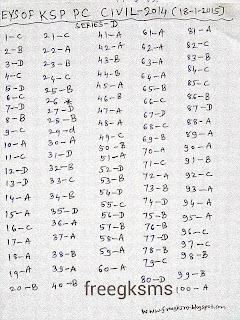 EYS OF KSP PC CIVIL-2014 (18-1-2015)
SERIES-D
1-C
2-B
3-D
4-C
5-D
6-C
7-D
8-B
9-C
10-A
11-C
12-D
13-D
14-A
15-A
16-C
17-A
18-A
19-A
20-B
21-C
22-A
23-A
24-C
25-B
26-*
27-D
28-B
29-d
30-A
31-D
32-B
33-C
34-B
35-D
36-A
37-A
38-B
39-A
40-B
41-A
42-A
43-B
44-B
45-A
46-B
47-A
48-D
49-C
50-B
51-C
52-C
53-B
54-D
55-D
56-D
57-B
58-B
59-A
60-A
61-C
62-A
63-A
64-A
65-C
66-C
67-B
68-D
69-C
70-B
71-A
72-D
73-B
74-D
75-D
76-D
77-D
78-B
79-C
80-D
81-A
82-C
83-C
84-A
85-C
86-C
87-B
88-A
89-C
90-A
91-A
92-A
93-A
94-A
95-A
96-C
97-C
98-B
99-B
100-A
freegksms